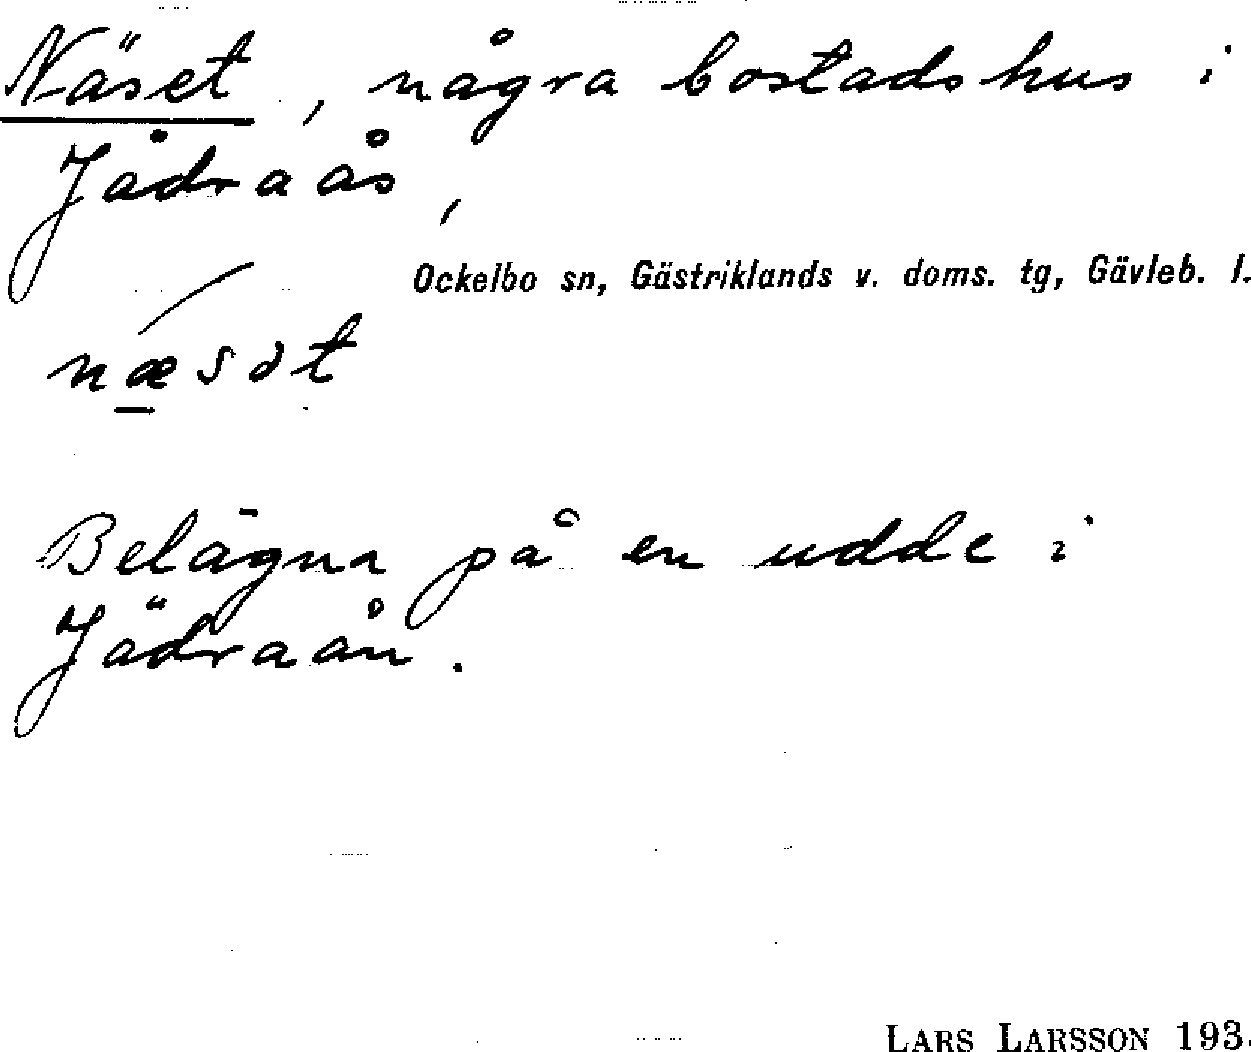 Näset, några bostadshus i
Jådraås,
Ockelbo sn, Gästriklands v. doms. tg, Gävleb. l.
næsət
Belägna på en udde i
Jädraån.
LARS LARSSON 193.